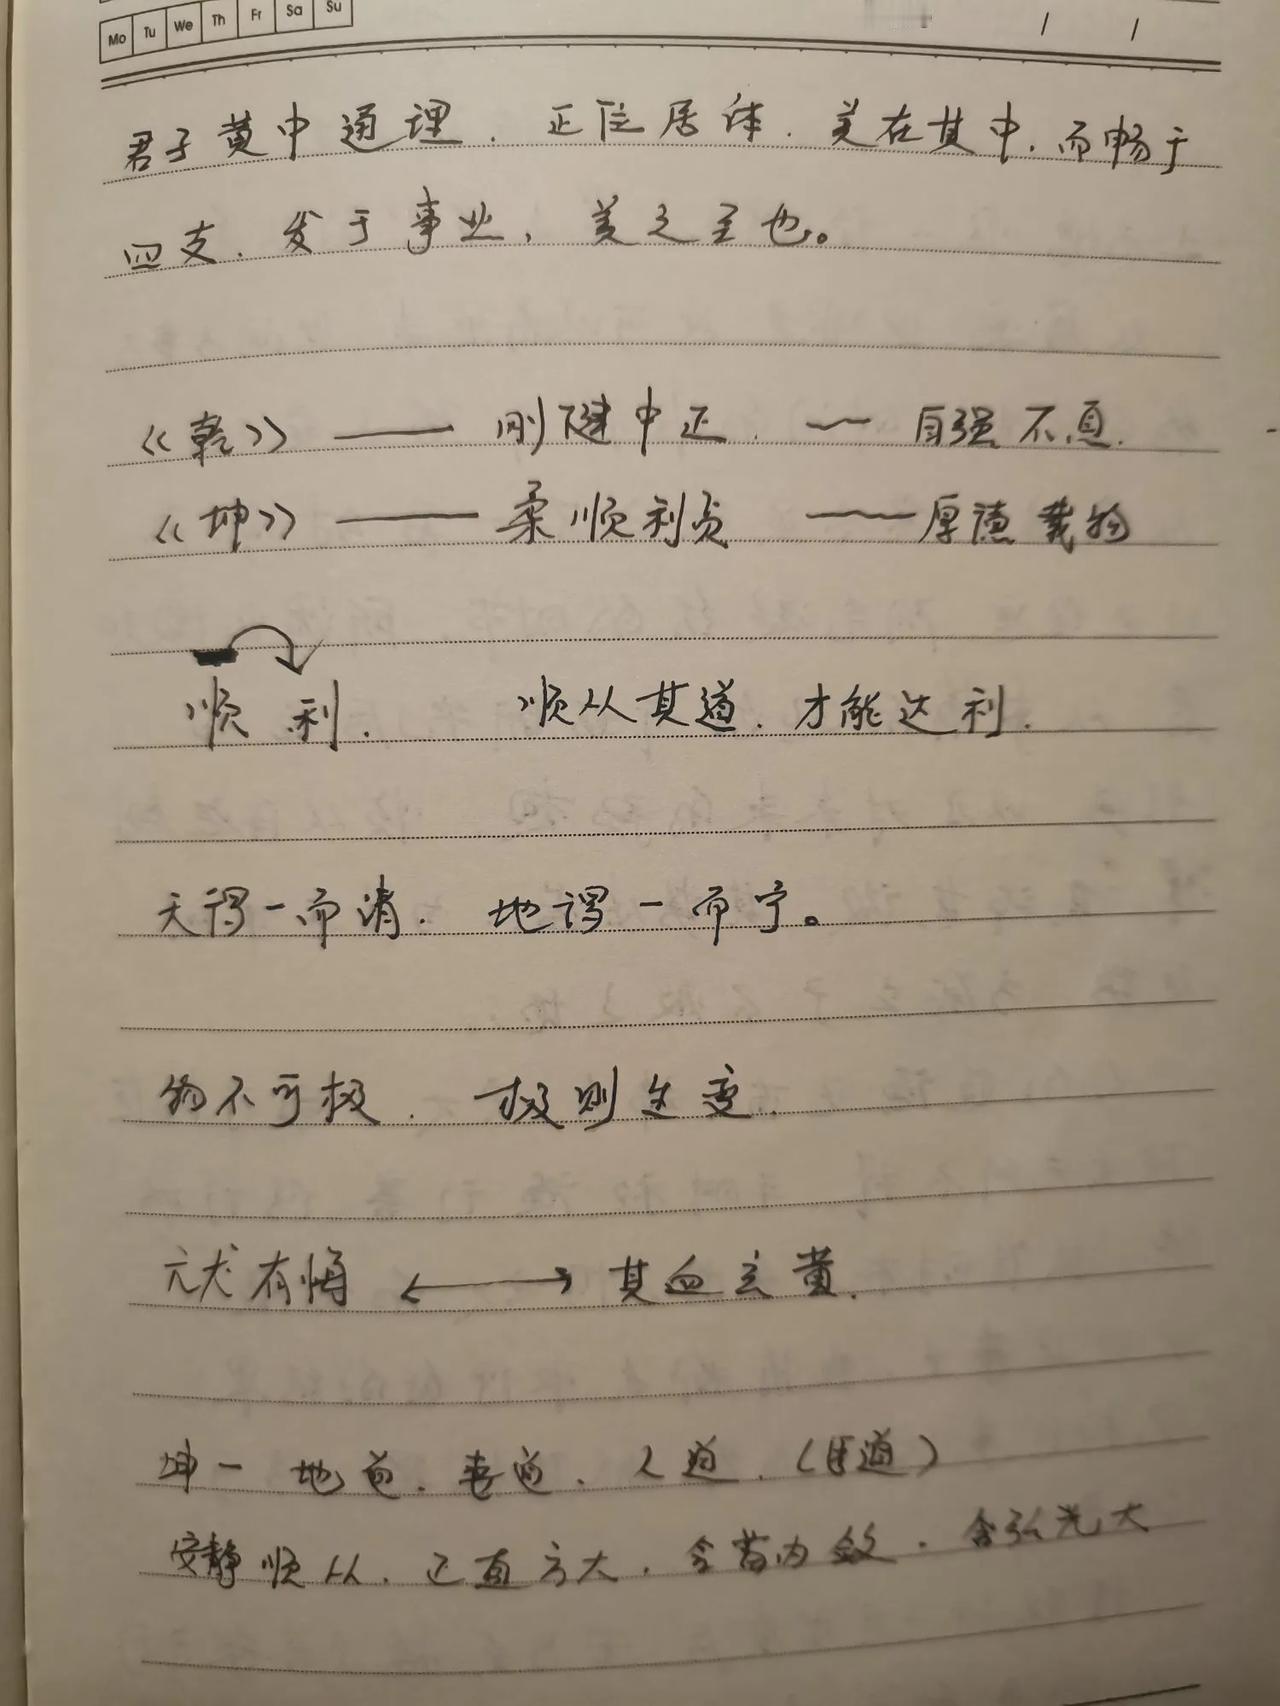 Mo Tu We Th Fr Sa Su
君子黄中通理．正位居体．美在其中．而畅于
四支．发于事业，美之至也。
《乾》—— 刚健中正．—— 自强不息．
《坤》—— 柔顺利贞 —— 厚德载物
顺 利． 顺从其道．才能达利．
天得一而清． 地得一而宁。
物不可极． 极则生变．
亢龙有悔 ←→ 其血玄黄．
坤－地道．妻道．人道．（臣道）
安静顺从．正直方大．含蓄内敛．含弘光大